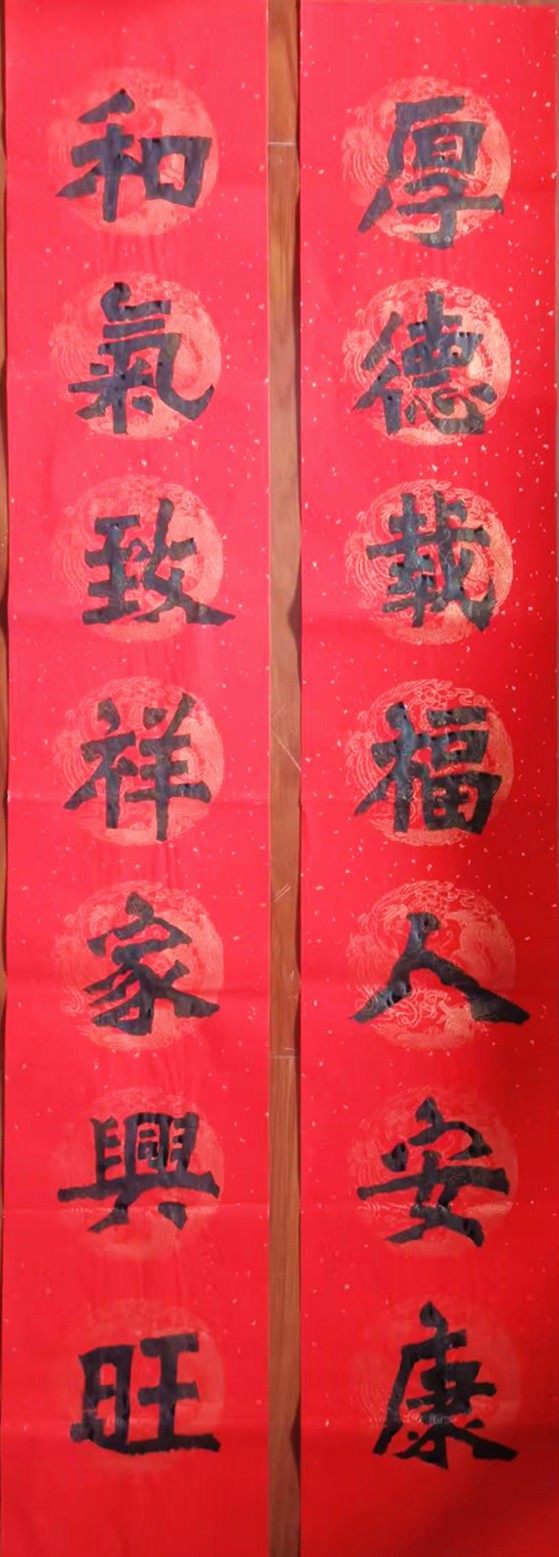 厚德载福人安康
和氣致祥家興旺